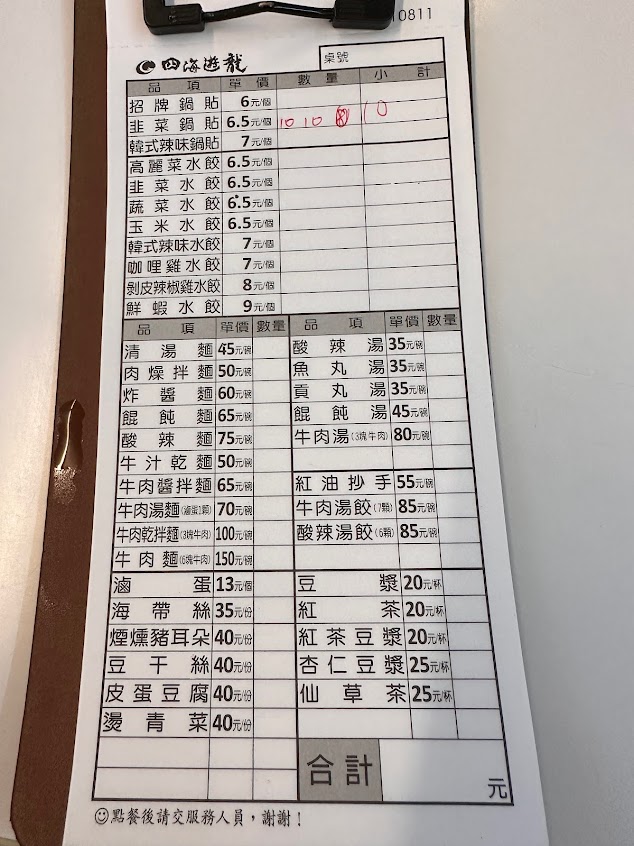 10811
四海遊龍
桌號
品項 單價 數量 小計
招牌鍋貼 6元/個
韭菜鍋貼 6.5元/個 10 10 10
韓式辣味鍋貼 7元/個
高麗菜水餃 6.5元/個
韭菜水餃 6.5元/個
蔬菜水餃 6.5元/個
玉米水餃 6.5元/個
韓式辣味水餃 7元/個
咖哩雞水餃 7元/個
剝皮辣椒雞水餃 8元/個
鮮蝦水餃 9元/個
品項 單價 數量 品項 單價 數量
清湯麵 45元/碗 酸辣湯 35元/碗
肉燥拌麵 50元/碗 魚丸湯 35元/碗
炸醬麵 60元/碗 貢丸湯 35元/碗
餛飩麵 65元/碗 餛飩湯 45元/碗
酸辣麵 75元/碗 牛肉湯(3塊牛肉) 80元/碗
牛汁乾麵 50元/碗
牛肉醬拌麵 65元/碗 紅油抄手 55元/碗
牛肉湯麵(滷蛋1顆) 70元/碗 牛肉湯餃(7顆) 85元/碗
牛肉乾拌麵(3塊牛肉) 100元/碗 酸辣湯餃(6顆) 85元/碗
牛肉麵(6塊牛肉) 150元/碗
滷蛋 13元/個 豆漿 20元/杯
海帶絲 35元/份 紅茶 20元/杯
煙燻豬耳朵 40元/份 紅茶豆漿 20元/杯
豆干絲 40元/份 杏仁豆漿 25元/杯
皮蛋豆腐 40元/份 仙草茶 25元/杯
燙青菜 40元/份
合計 元
點餐後請交服務人員，謝謝！